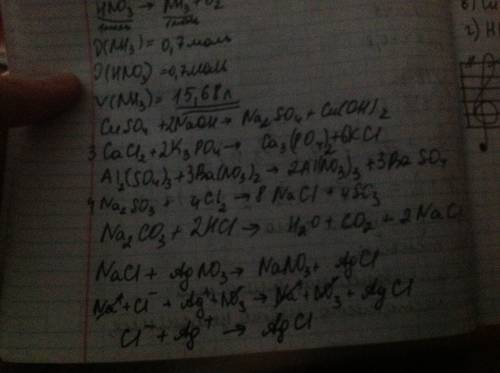 HNO₃ → NH₃ + O₂
1моль 1моль
ν(NH₃) = 0,7 моль
ν(HNO₃) = 0,7 моль
V(NH₃) = 15,68 л
CuSO₄ + 2NaOH → Na₂SO₄ + Cu(OH)₂
3CaCl₂ + 2K₃PO₄ → Ca₃(PO₄)₂ + 6KCl
Al₂(SO₄)₃ + 3Ba(NO₃)₂ → 2Al(NO₃)₃ + 3BaSO₄
4Na₂SO₃ + 4Cl₂ → 8NaCl + 4SO₃
Na₂CO₃ + 2HCl → H₂O + CO₂ + 2NaCl
NaCl + AgNO₃ → NaNO₃ + AgCl
Na⁺ + Cl⁻ + Ag⁺ + NO₃⁻ → Na⁺ + NO₃⁻ + AgCl
Cl⁻ + Ag⁺ → AgCl
в) Cu
г) H